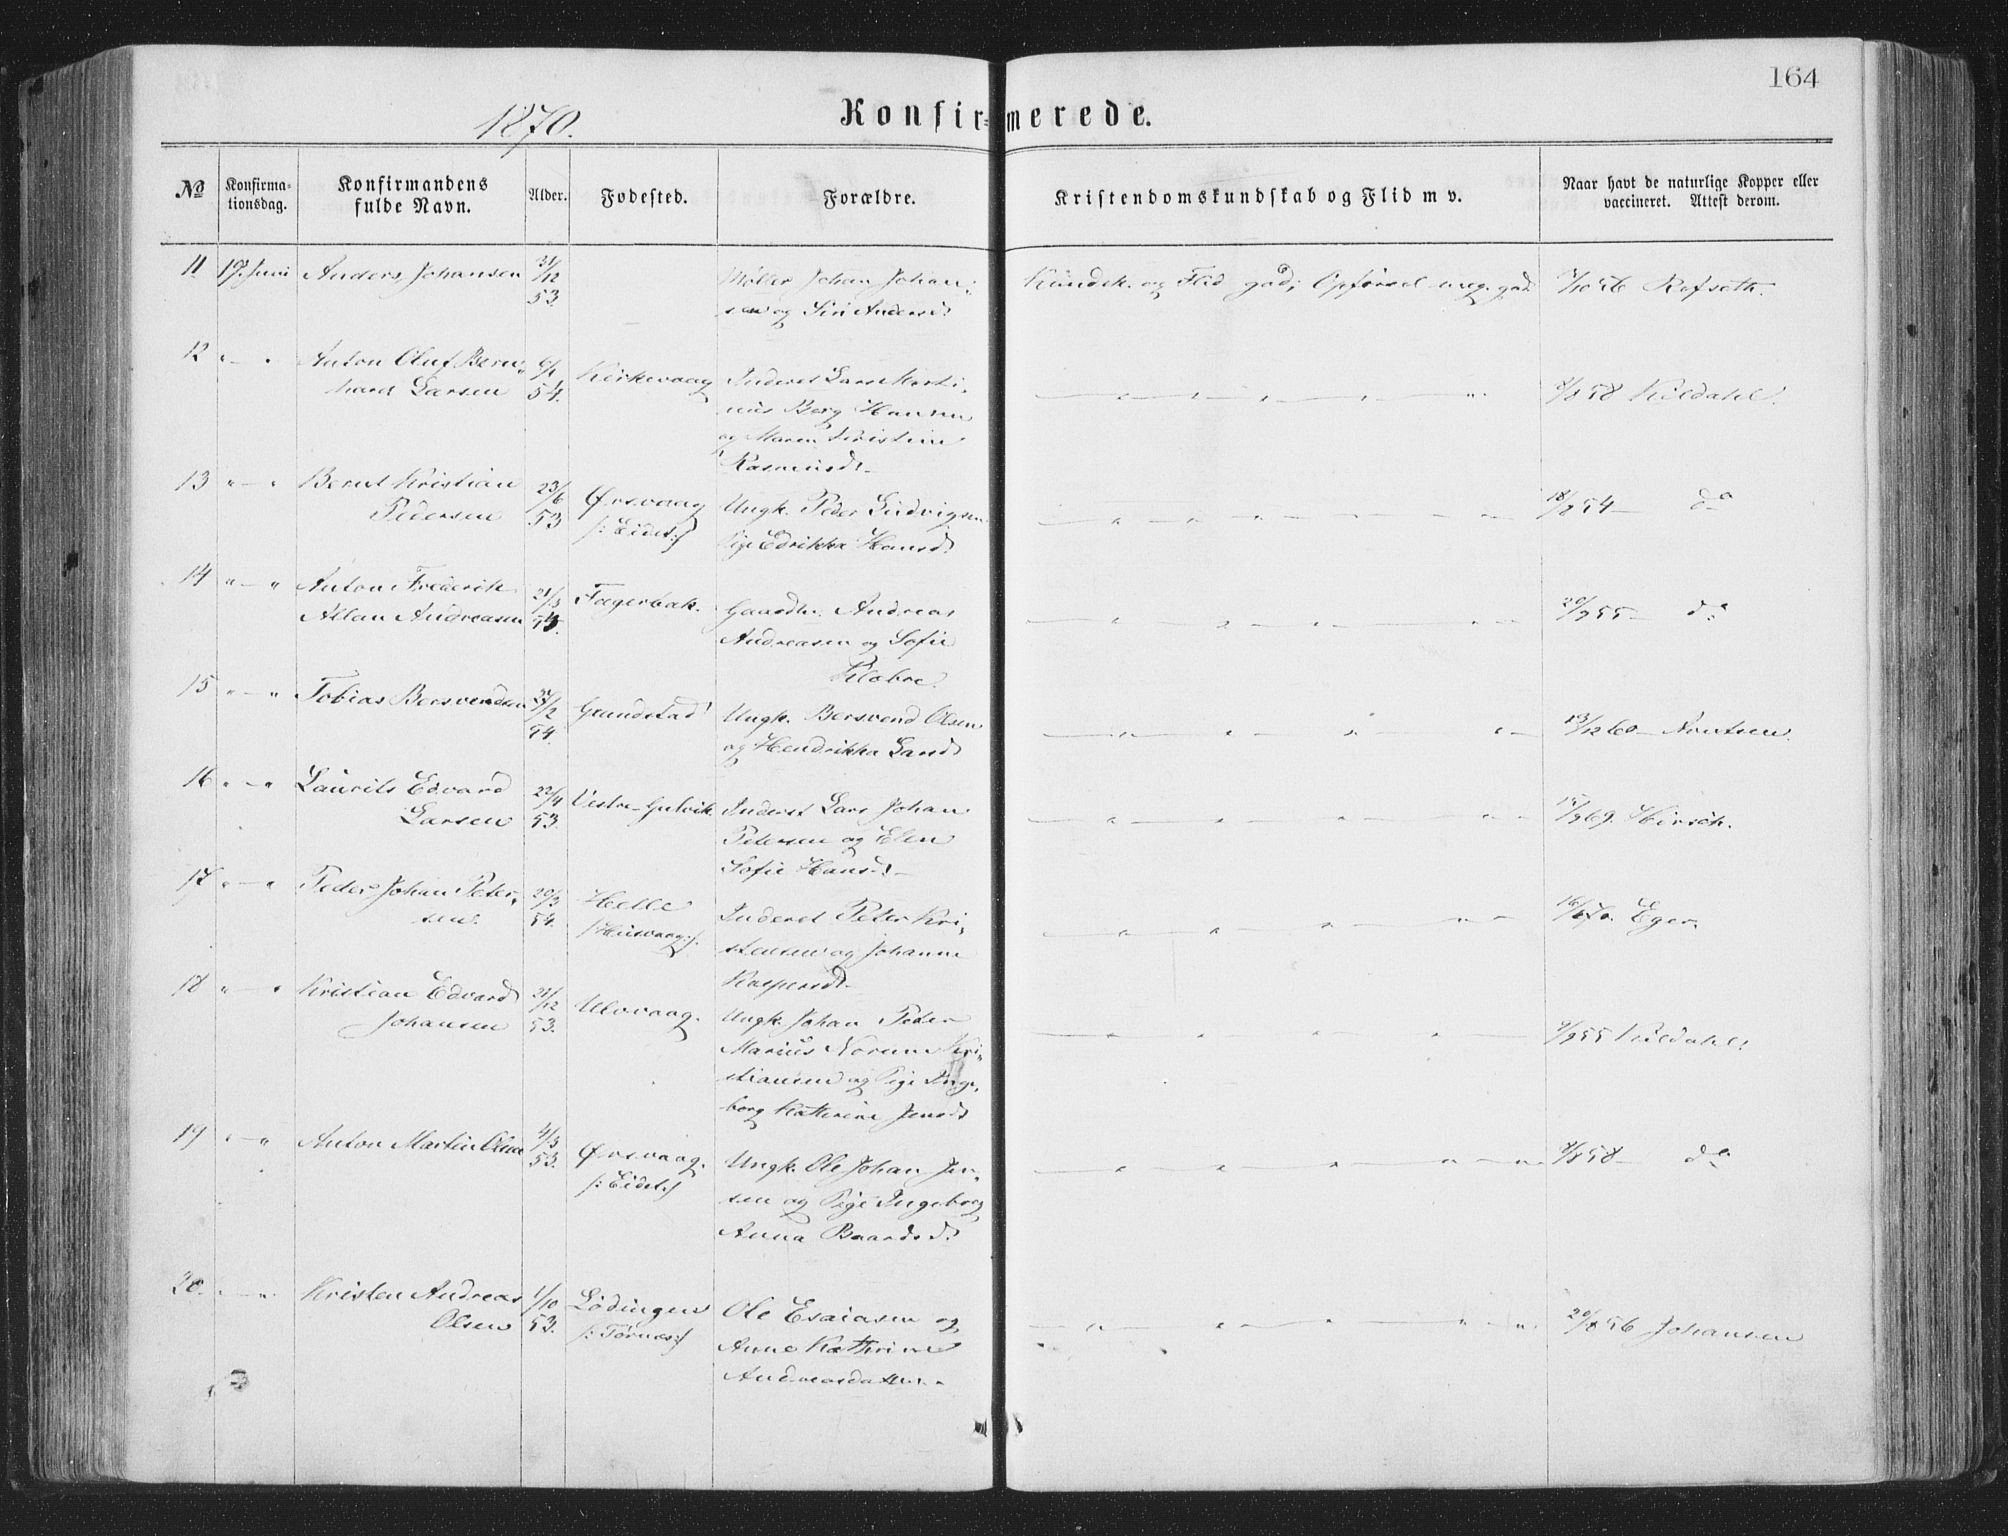 164
1870.
Konfirmerede.
No
Konfirma-
tionsdag.
Konfirmandens
fulde Navn.
Alder.
Fødested.
Forældre.
Kristendomskundskab og Flid m v.
Naar havt de naturlige Kopper eller
vaccineret. Attest derom.
11 17. Juni Anders Johansen 31/12 53.
Møller Johan Johan-
sen og Siri Andersd.
Kundsk. og Flid god; Opførsel meg. god.
Refseth.
12 " — " Anton Oluf Bern-
hard Larsen
6/1 54.
Kirkevaag
Inderst Lars Marti-
nus Berg Hansen
og Maren Kristine
Rasmusd.
8/8 58 Kildahl.
13 " — " Bernt Kristian
Pedersen
23/6 53
Ørsvaag
/: Eidet :/
Ungk. Peder Ludvigsen
Pige Edrikka Hansd.
18/8 54 — do
14 " — " Anton Frederik
Allan Andreasen
21/3
Fagerbak.
Gaardbr. Andreas
Andreasen og Sofie
Klæboe.
20/9 55 — do
15 " — " Tobias Bersvendsen
27/2 54.
Grundstad
Ungk. Bersvend Olsen
og Hendrikka Larsd.
13/12 60 — Knutsen.
16 " — " Laurits Edvard
Larsen
22/4 53.
Vestre-Gulvik
Inderst Lars Johan
Petersen og Elen
Sofie Hansd.
15/9 69. Hirsch.
17 " — " Peder Johan Peter-
sen.
20/3 54.
Helle
Inderst Peter Kri-
stensen og Johanne
Kaspersd.
Eger.
18 " — " Kristian Edvard
Johansen
21/12 53.
Ulvaag.
Ungk. Johan Peder
Marius Norum Kri-
stiansen og Pige Inge-
borg Kathrine Jensd.
9/9 55 Kildahl.
19 " — " Anton Martin Olsen
4/3 53.
Ørsvaag.
/: Eidet :/
Ungk. Ole Johan Jen-
sen og Pige Ingeborg
Anna Baardsd.
8/8 58 — do
20. " — " Kristen Andreas
Olsen
1/10 53.
Lødingen
/: Tørnæs :/
Ole Esaiasen og
Anne Kathrine
Andreasdatter.
20/8 56 Johansen